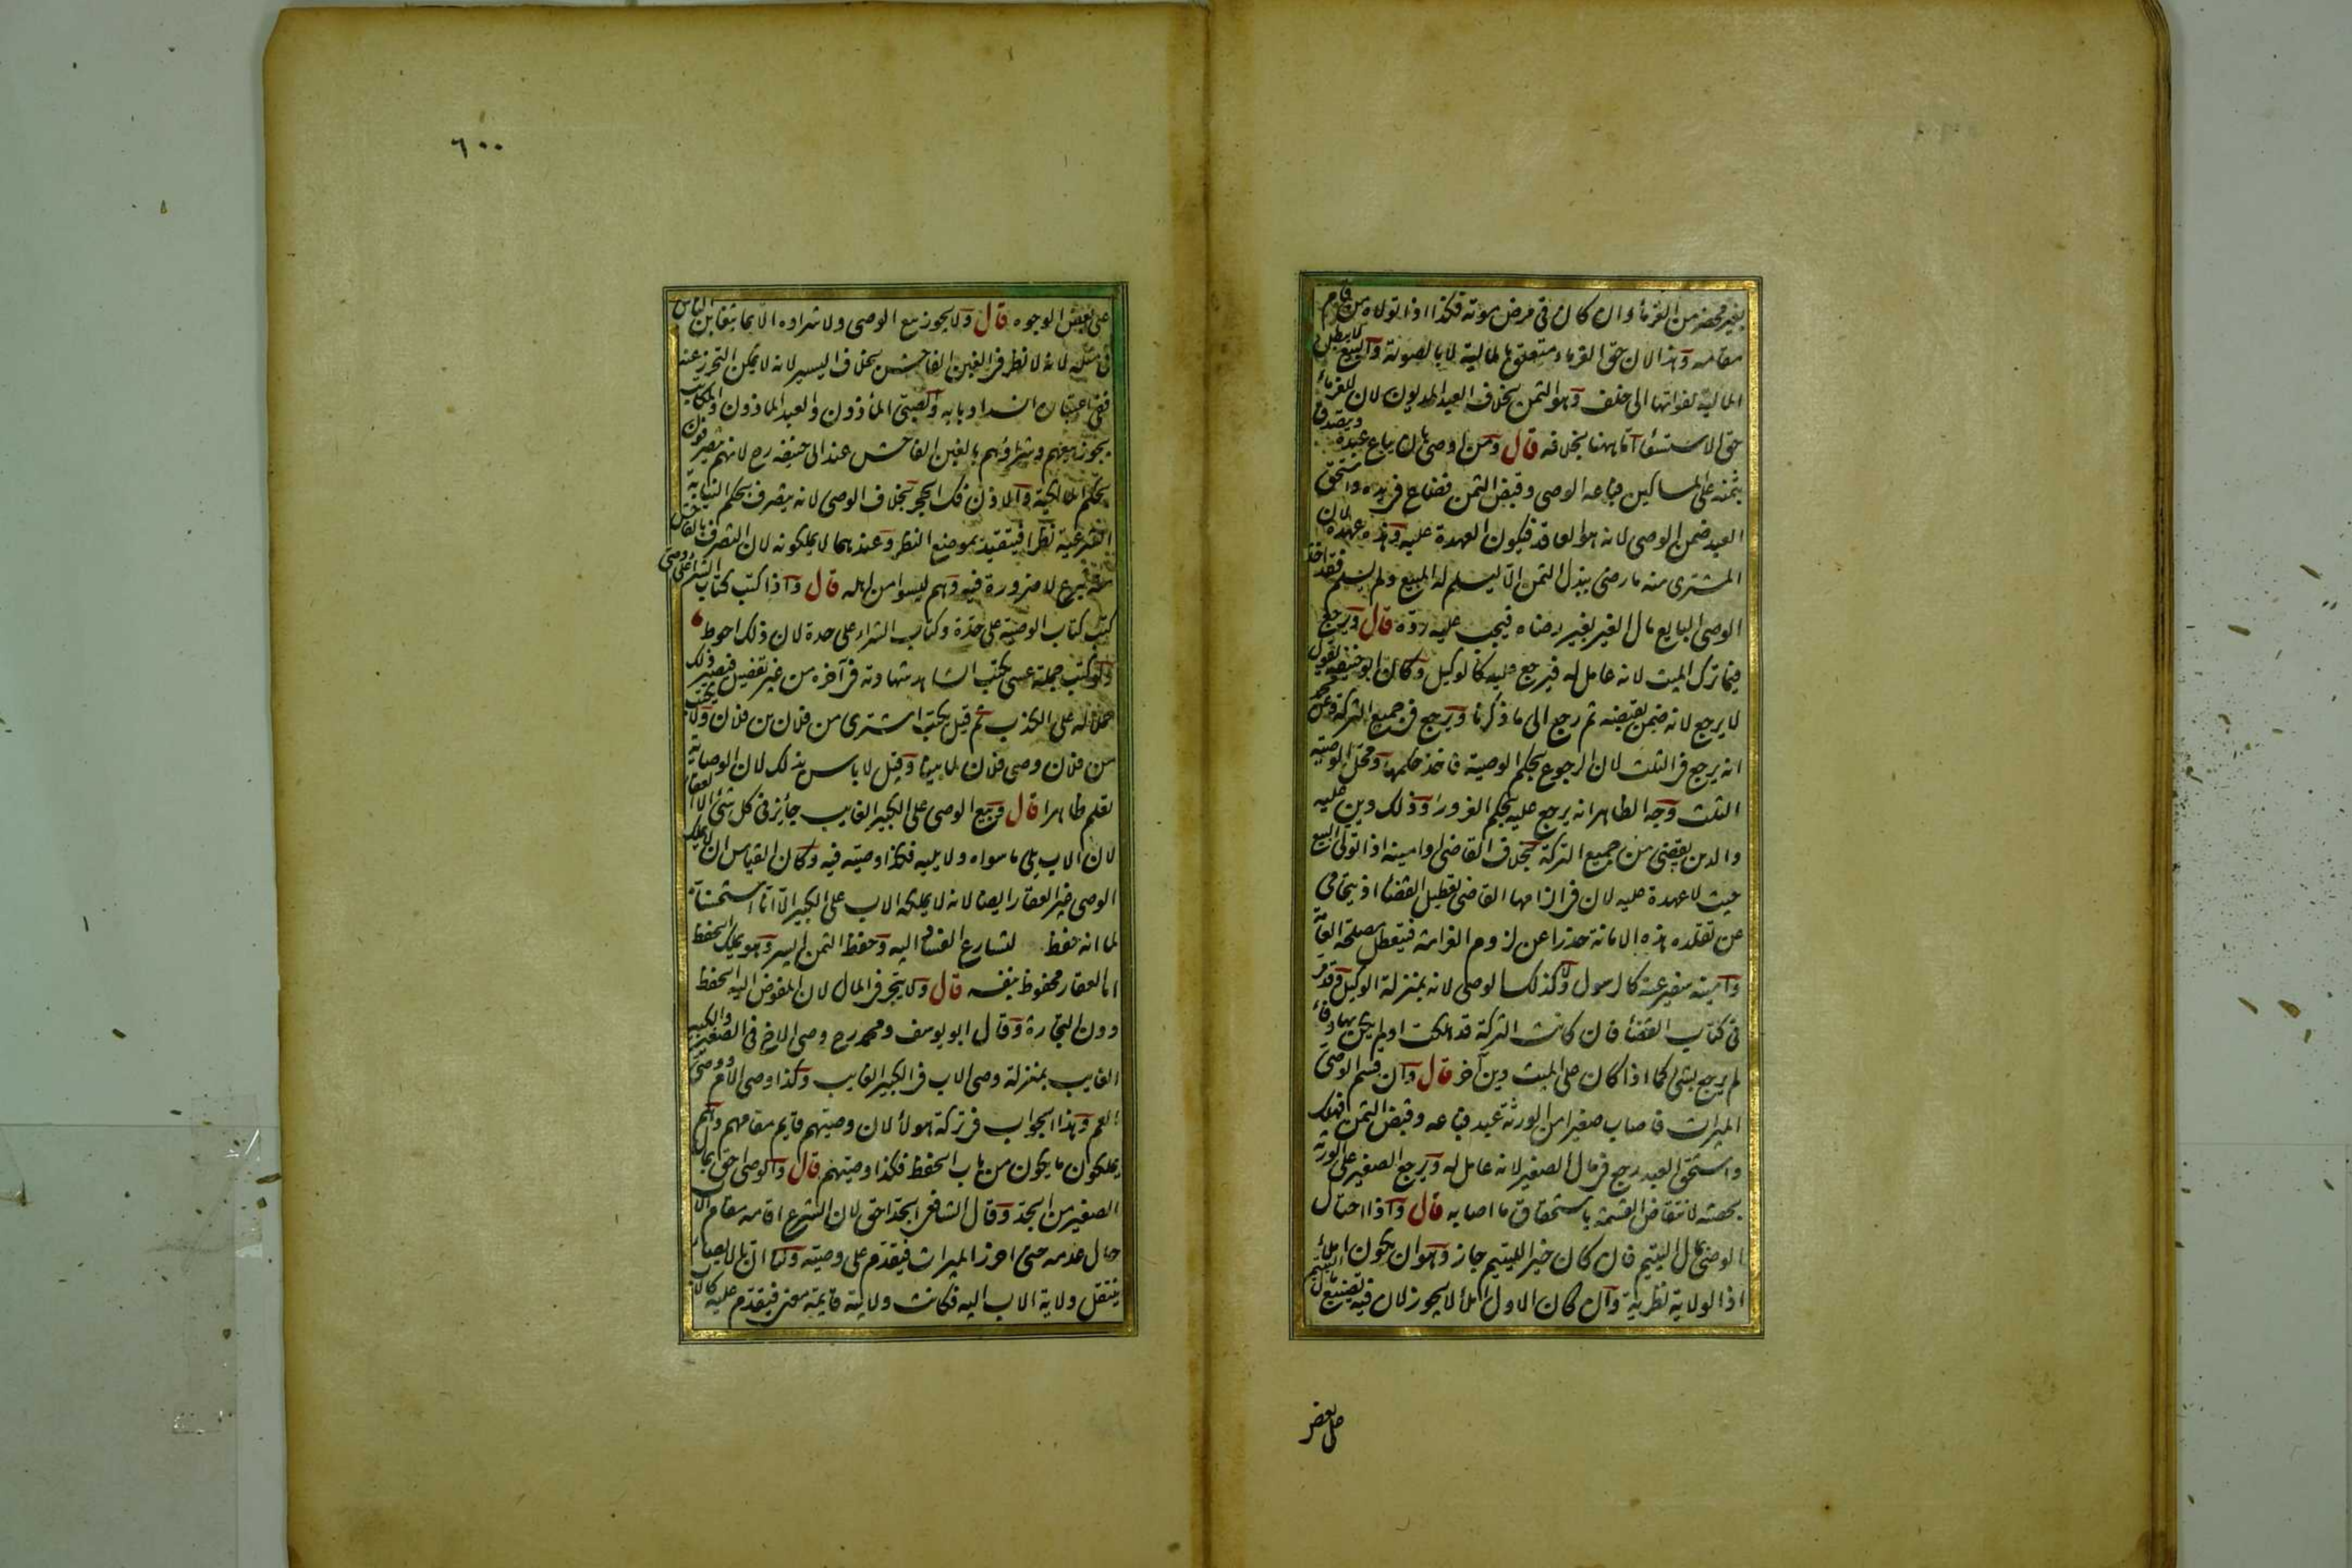 بغير محضر من الغرماء وان كان في مرض موته فكذا اذا تولاه من قام
مقامه وهذا لان حق الغرماء متعلق بالمالية لا بالصورة والبيع لا يبطل
المالية لفواتها الى خلف وهو الثمن بخلاف العبد المديون لان للغرماء
حق الاستسعاء اما ههنا بخلافه قال ومن اوصى بان يباع عبده ويتصدق
بثمنه على المساكين فباعه الوصي وقبض الثمن فضاع في يده واستحق
العبد ضمن الوصي لانه هو العاقد فيكون العهدة عليه وهذه عهدة لان
المشترى منه ما رضي ببذل الثمن الا ليسلم له المبيع ولم يسلم فقد اخذ
الوصي البايع مال الغير بغير رضاه فيجب عليه رده قال ويرجع
فيما ترك الميت لانه عامل له فيرجع عليه كالوكيل وكان ابو حنيفة يقول
لا يرجع لانه ضمن بقبضه ثم رجع الى ما ذكرنا ويرجع في جميع التركة وعن محمد
انه يرجع في الثلث لان الرجوع بحكم الوصية فاخذ حكمها ومحل الوصية
الثلث وجه الظاهر انه يرجع عليه بحكم الغرور وذلك دين عليه
والدين يقضى من جميع التركة بخلاف القاضي وامينه اذا تولى البيع
حيث لا عهدة عليه لان في الزامها القاضي تعطيل القضاء اذ يتحامى
عن تقلده هذه الامانة حذرا عن لزوم الغرامة فيتعطل مصلحة العامة
وامينه سفير عنه كالرسول ولا كذلك الوصي لانه بمنزلة الوكيل وقد مر
في كتاب القضاء فان كانت التركة قد هلكت او لم يكن بها وفاء
لم يرجع بشئ كما اذا كان على الميت دين آخر قال وان قسم الوصي
الميراث فاصاب صغيرا من الورثة عبد فباعه وقبض الثمن فهلك
واستحق العبد رجع في مال الصغير لانه عامل له ويرجع الصغير على الورثة
بحصته لانتقاض القسمة باستحقاق ما اصابه قال واذا احتال
الوصي بمال اليتيم فان كان خيرا لليتيم جاز وهو ان يكون املأ
اذ الولاية نظرية وان كان الاول املأ لا يجوز لان فيه تضييع مال اليتيم
على بعض
٦٠٠
على بعض الوجوه قال ولا يجوز بيع الوصي ولا شراؤه الا بما يتغابن الناس
في مثله لانه لا نظر في الغبن الفاحش بخلاف اليسير لانه لا يمكن التحرز عنه
ففي اعتباره انسداد بابه والصبي المأذون والعبد الماذون والمكاتب
يجوز بيعهم وشراؤهم بالغبن الفاحش عند ابي حنيفه رح لانهم يتصرفون
بحكم المالكية والاذن فك الحجر بخلاف الوصي لانه يتصرف بحكم النيابة
الشرعية نظرا فيتقيد بموضع النظر وعندهما لا يملكونه لان التصرف بالفاحش
منه تبرع لا ضرورة فيه وهم ليسوا من اهله قال واذا كتب كتاب الشراء على وصي
كتب كتاب الوصية على حدة وكتاب الشراء على حدة لان ذلك احوط
ولو كتب جملة عسى يكتب الشاهد شهادته في آخره من غير تفصيل فيصير ذلك
حملا له على الكذب ثم قيل يكتب اشترى من فلان بن فلان ولا يكتب
من فلان وصي فلان لما بينا وقيل لا باس بذلك لان الوصاية
تعلم ظاهرا قال وبيع الوصي على الكبير الغايب جائز في كل شئ الا العقار
لان الاب يلي ما سواه ولا يليه فكذا وصيه فيه وكان القياس ان لا يملك
الوصي غير العقار ايضا لانه لا يملكه الاب على الكبير الا انا استحسناه
لما انه حفظ لتسارع الفساد اليه وحفظ الثمن ايسر وهو يملك الحفظ
اما العقار محفوظ بنفسه قال ولا يتجر في المال لان المفوض اليه الحفظ
دون التجارة وقال ابو يوسف ومحمد رح وصي الاخ في الصغير والكبير
الغايب بمنزلة وصي الاب في الكبير الغايب وكذا وصي الام ووصي
العم وهذا الجواب في تركة هولاء لان وصيهم قايم مقامهم وهم
يملكون ما يكون من باب الحفظ فكذا وصيهم قال والوصي احق بمال
الصغير من الجد وقال الشافعي الجد احق لان الشرع اقامه مقام الاب
حال عدمه حتى احرز الميراث فيقدم على وصيه ولنا ان بالايصاء
ينتقل ولاية الاب اليه فكانت ولايته قايمة معنى فيقدم عليه كالاب